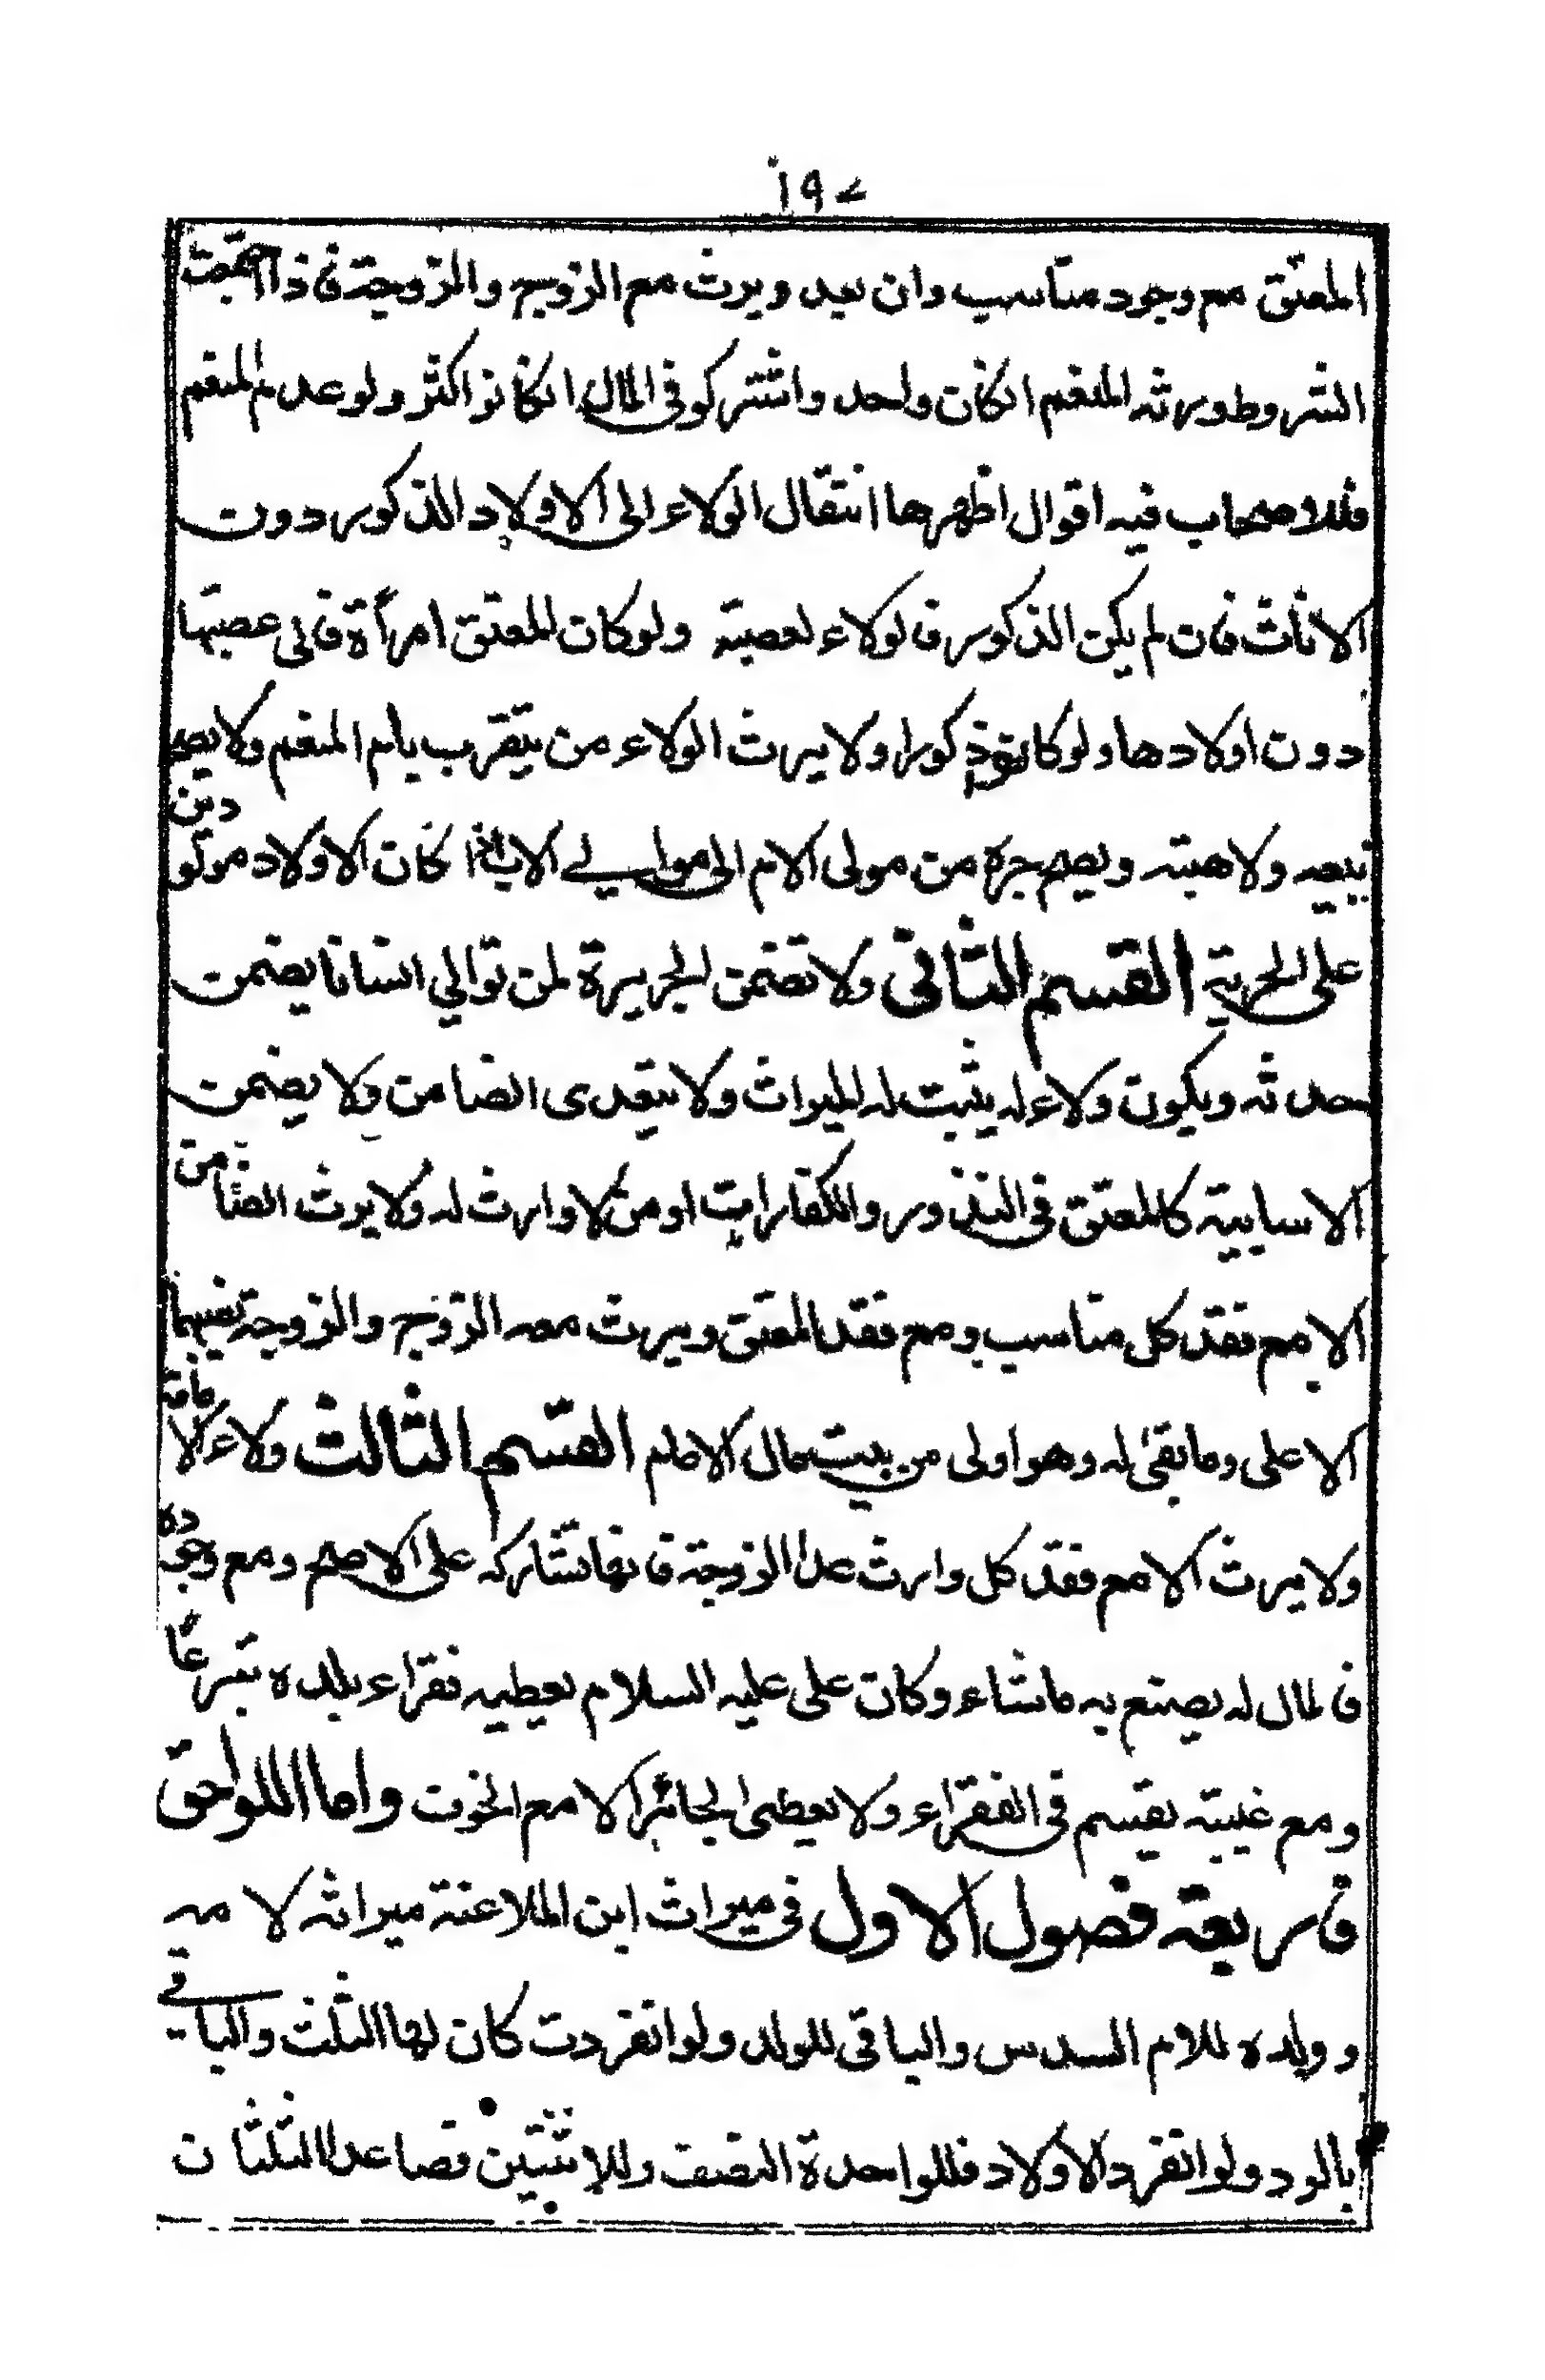 ١٩٤
المعتق مع وجود مناسب وان بعد ويرث مع الزوج والزوجة فاذا اجتمعت
الشروط ورثه المنعم انكان واحد واشتركو في المال انكانو اكثر ولو عدم المنعم
فللاصحاب فيه اقوال اظهرها انتقال الولاء الى الاولاد الذكور دون
الاناث فان لم يكن الذكور فالولاء لعصبته ولو كان المعتق امرأة فالى عصبتها
دون اولادها ولو كانو ذكورا ولا يرث الولاء من يتقرب بام المنعم ولا يصح
بيعه ولا هبته ويصح جره من مولى الام الى موالي الاب اذا كان الاولاد مولودين
على الحرية القسم الثاني ولا تضمن الجريرة لمن توالي انسانا يضمن
حدثه ويكون ولاءه له يثبت له الميراث ولا يتعدى الضامن ولا يضمن
الا سايبة كالمعتق في النذور والكفارات او من لا وارث له ولا يرث الضامن
الا مع فقد كل مناسب ومع فقد المعتق ويرث معه الزوج والزوجة نصيبهما
الاعلى وما بقى له وهو اولى من بيت مال الامام القسم الثالث ولاء الامامة
ولا يرث الا مع فقد كل وارث عدا الزوجة فانها تشاركه على الاصح ومع وجوده
فالمال له يصنع به ما شاء وكان على عليه السلام يعطيه فقراء بلده تبرعًا
ومع غيبته يقسم في الفقراء ولا يعطى الجائر الا مع الخوف واما اللواحق
فاربعة فصول الاول في ميراث ابن الملاعنة ميراثه لامه
وولده للام السدس والباقي للولد ولو انفردت كان لها الثلث والباقي
بالرد ولو انفرد الاولاد فللواحدة النصف وللاثنتين فصاعدا الثلثان